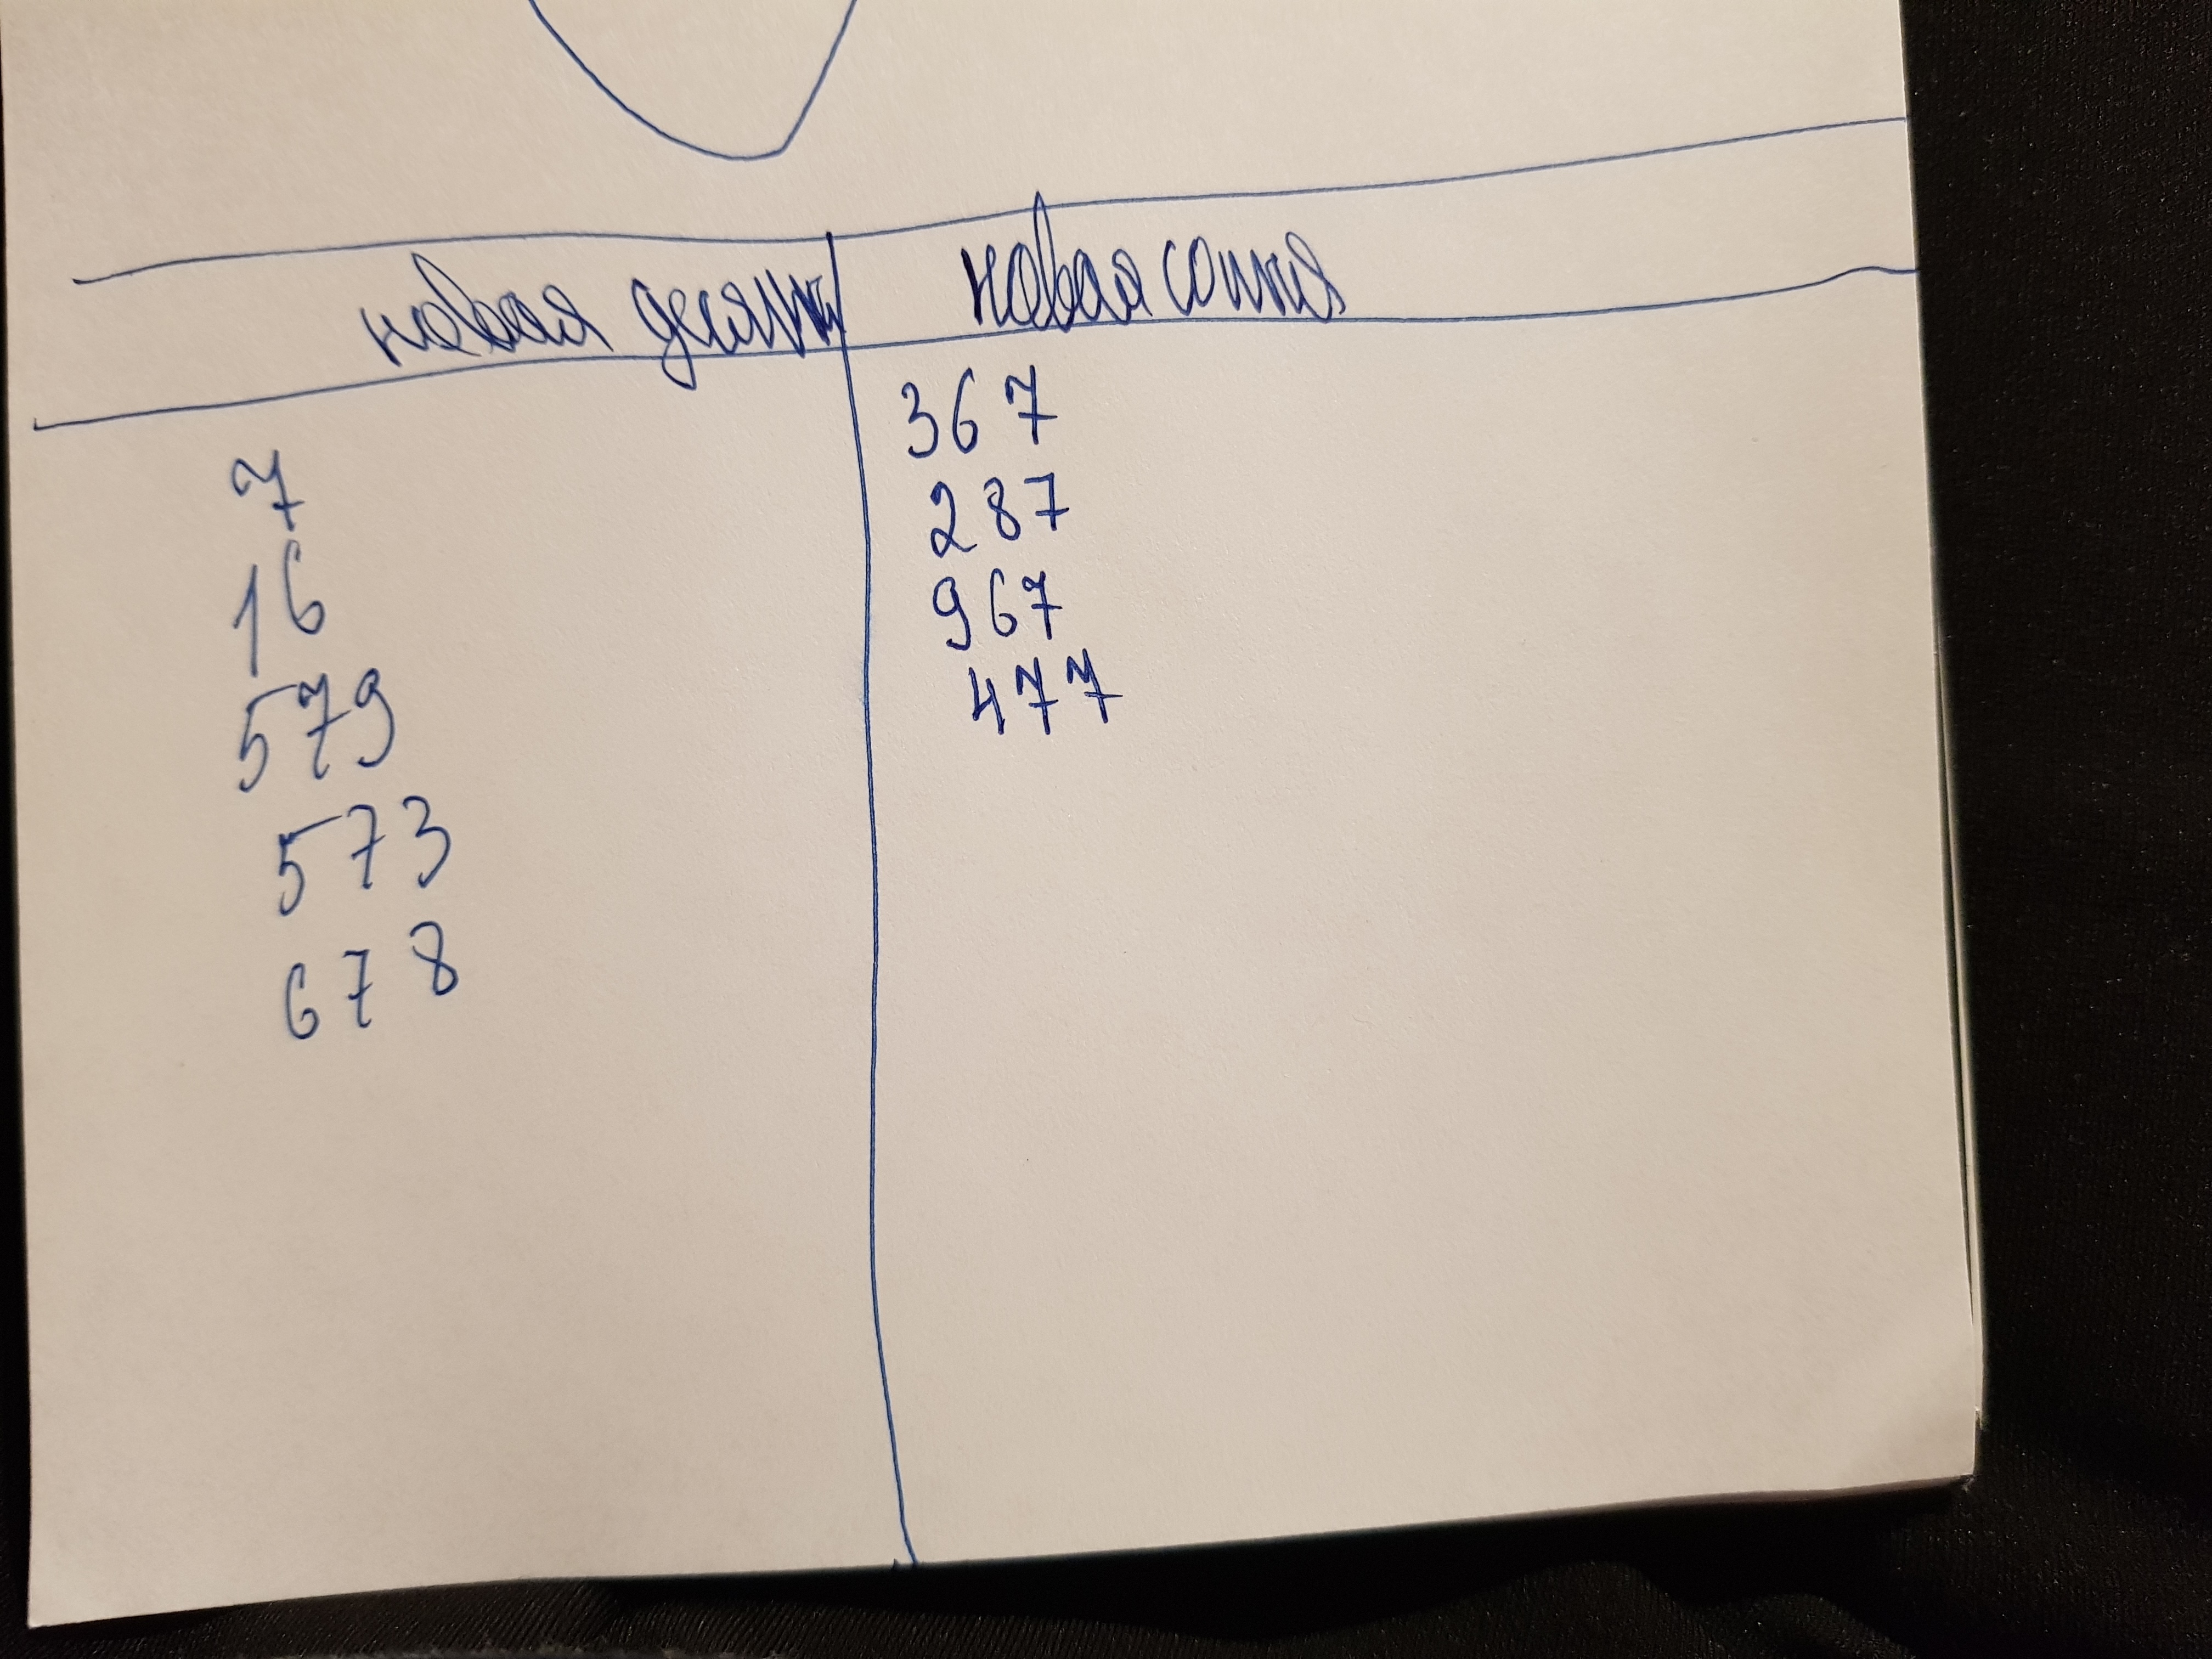 новая десятк новая сотня
7 367
16 287
579 967
573 477
678